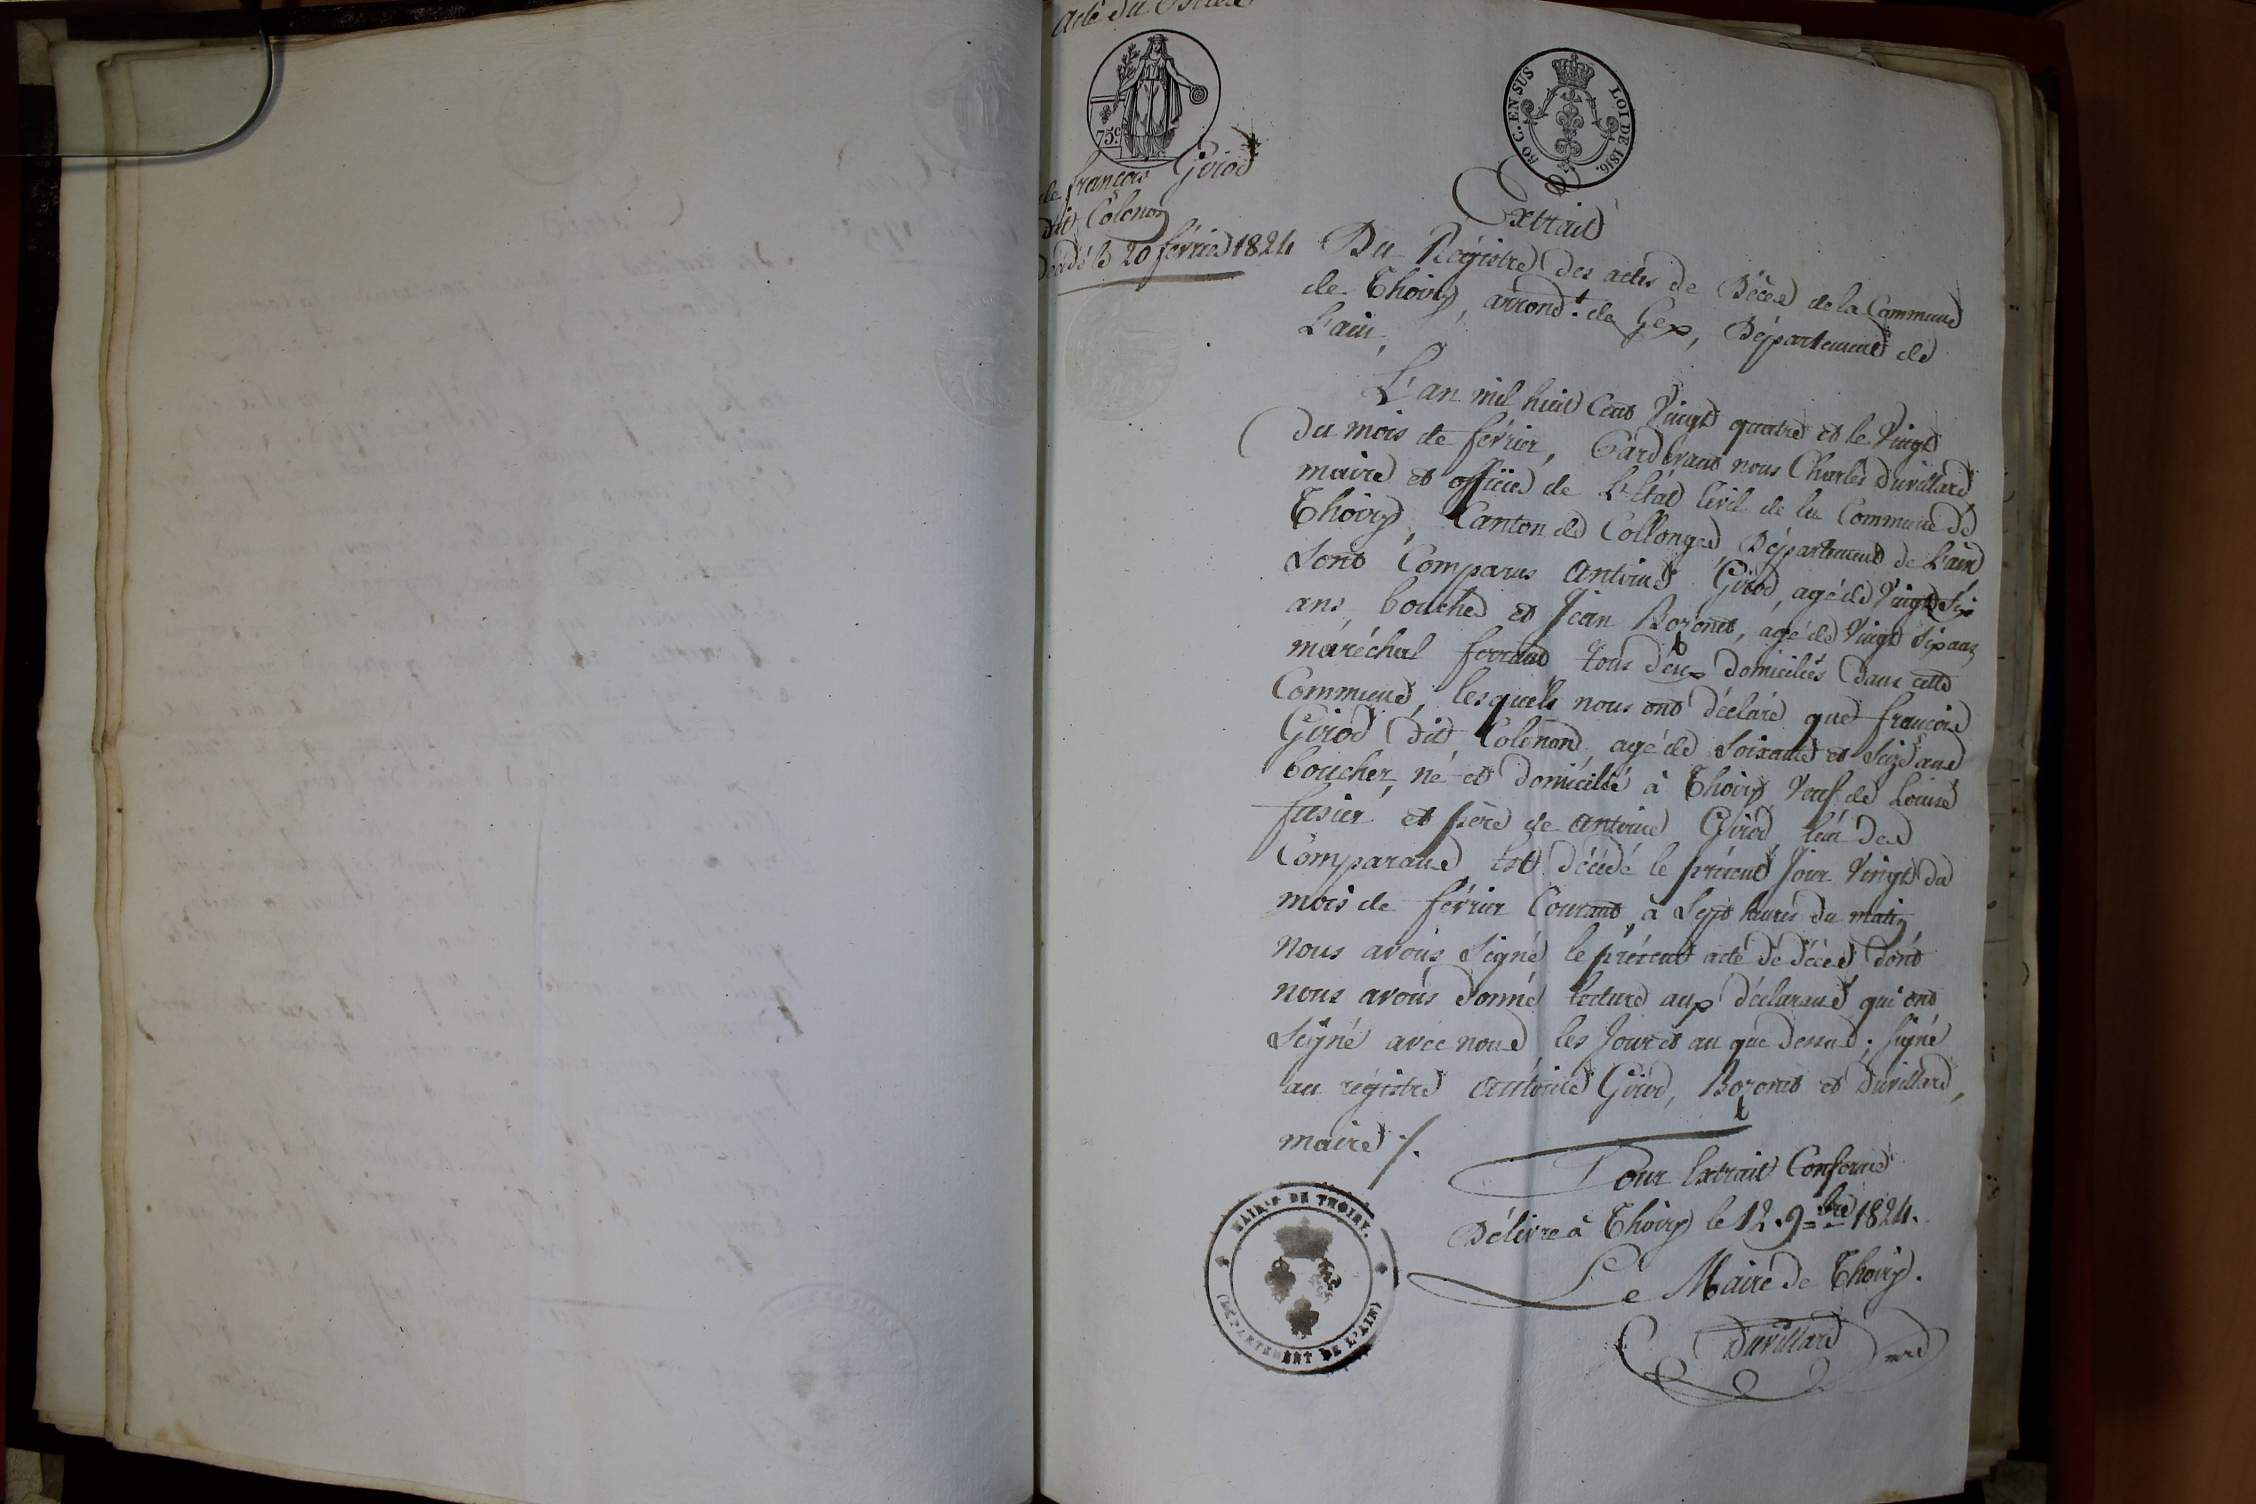 acte du Décès
75c.
50 C. EN SUS LOI DE 1816.
de françois Girod
dit Colonon
Décédé le 20 février 1824
Extrait
Du Régistre des actes de Décès de la Commune
de Thoiry, arrond.t de Gex, Département de
L'ain,
L'an mil huit Cent Vingt quatre et le Vingt
du mois de février, Pardevant nous Charles Duvillard
maire et officier de L'Etat Civil de la Commune de
Thoiry, Canton de Collonges Département de L'ain
Sont Comparus Antoine Girod, agé de Vingt Six
ans boucher et Jean Bozonet, agé de Vingt six ans
maréchal ferrant tous deux domiciliés dans cette
Commune, lesquels nous ont déclaré que françois
Girod dit Colonon agé de soixante et seize ans
boucher, né et domicilié à Thoiry, Veuf de Louise
fusier et père de antoine Girod l'un des
Comparans Est décédé le présent Jour Vingt du
mois de février Courant à Sept heures du matin
nous avons signé le présent acte de décès dont
nous avons donné lecture aux déclarans qui ont
Signé avec nous les Jour et an que dessus. signé
au régistre antoine Girod, Bozonet et Duvillard,
maire ./.
Pour Extrait Conforme
Délivré à Thoiry le 12. 9bre 1824.
Le Maire de Thoiry.
Duvillard mre
MAIRIE DE THOIRY.
(DÉPARTEMENT DE L'AIN)